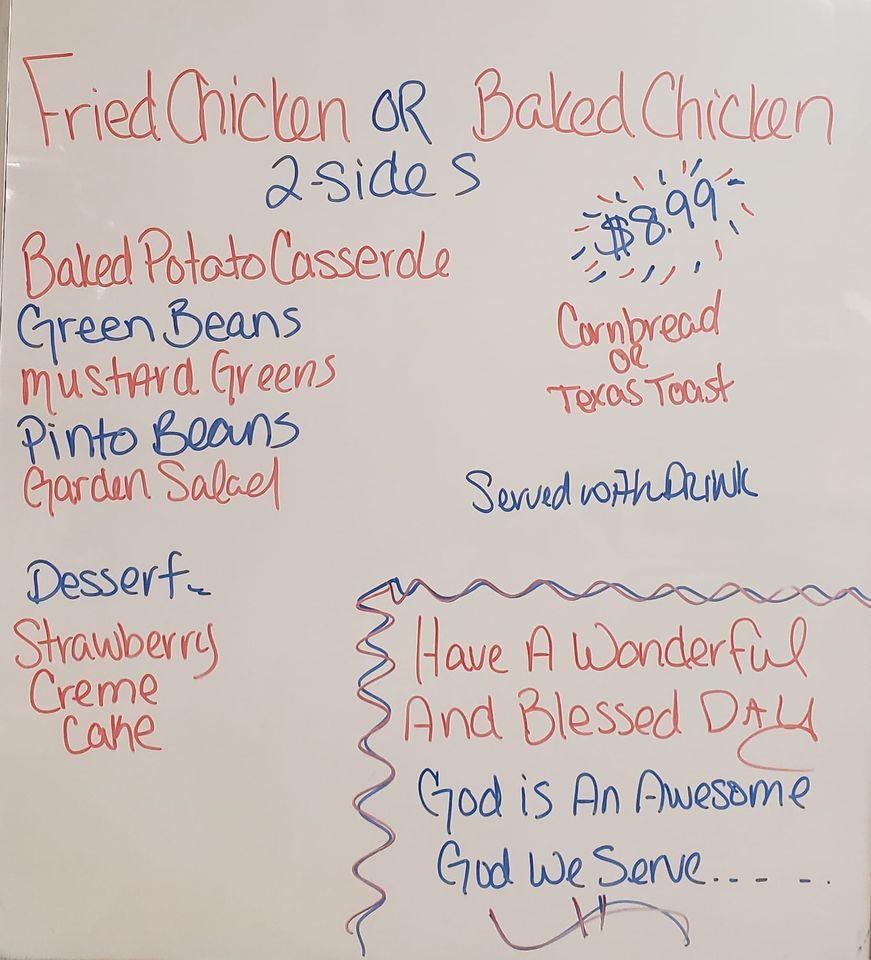 Fried Chicken OR Baked Chicken
2-sides
$8.99
Baked Potato Casserole
Green Beans
Mustard Greens
Pinto Beans
Garden Salad
Cornbread
OR
Texas Toast
Served with Drink
Dessert~
Strawberry
Creme
Cake
Have A Wonderful
And Blessed DAY
God is An Awesome
God We Serve.... - -.